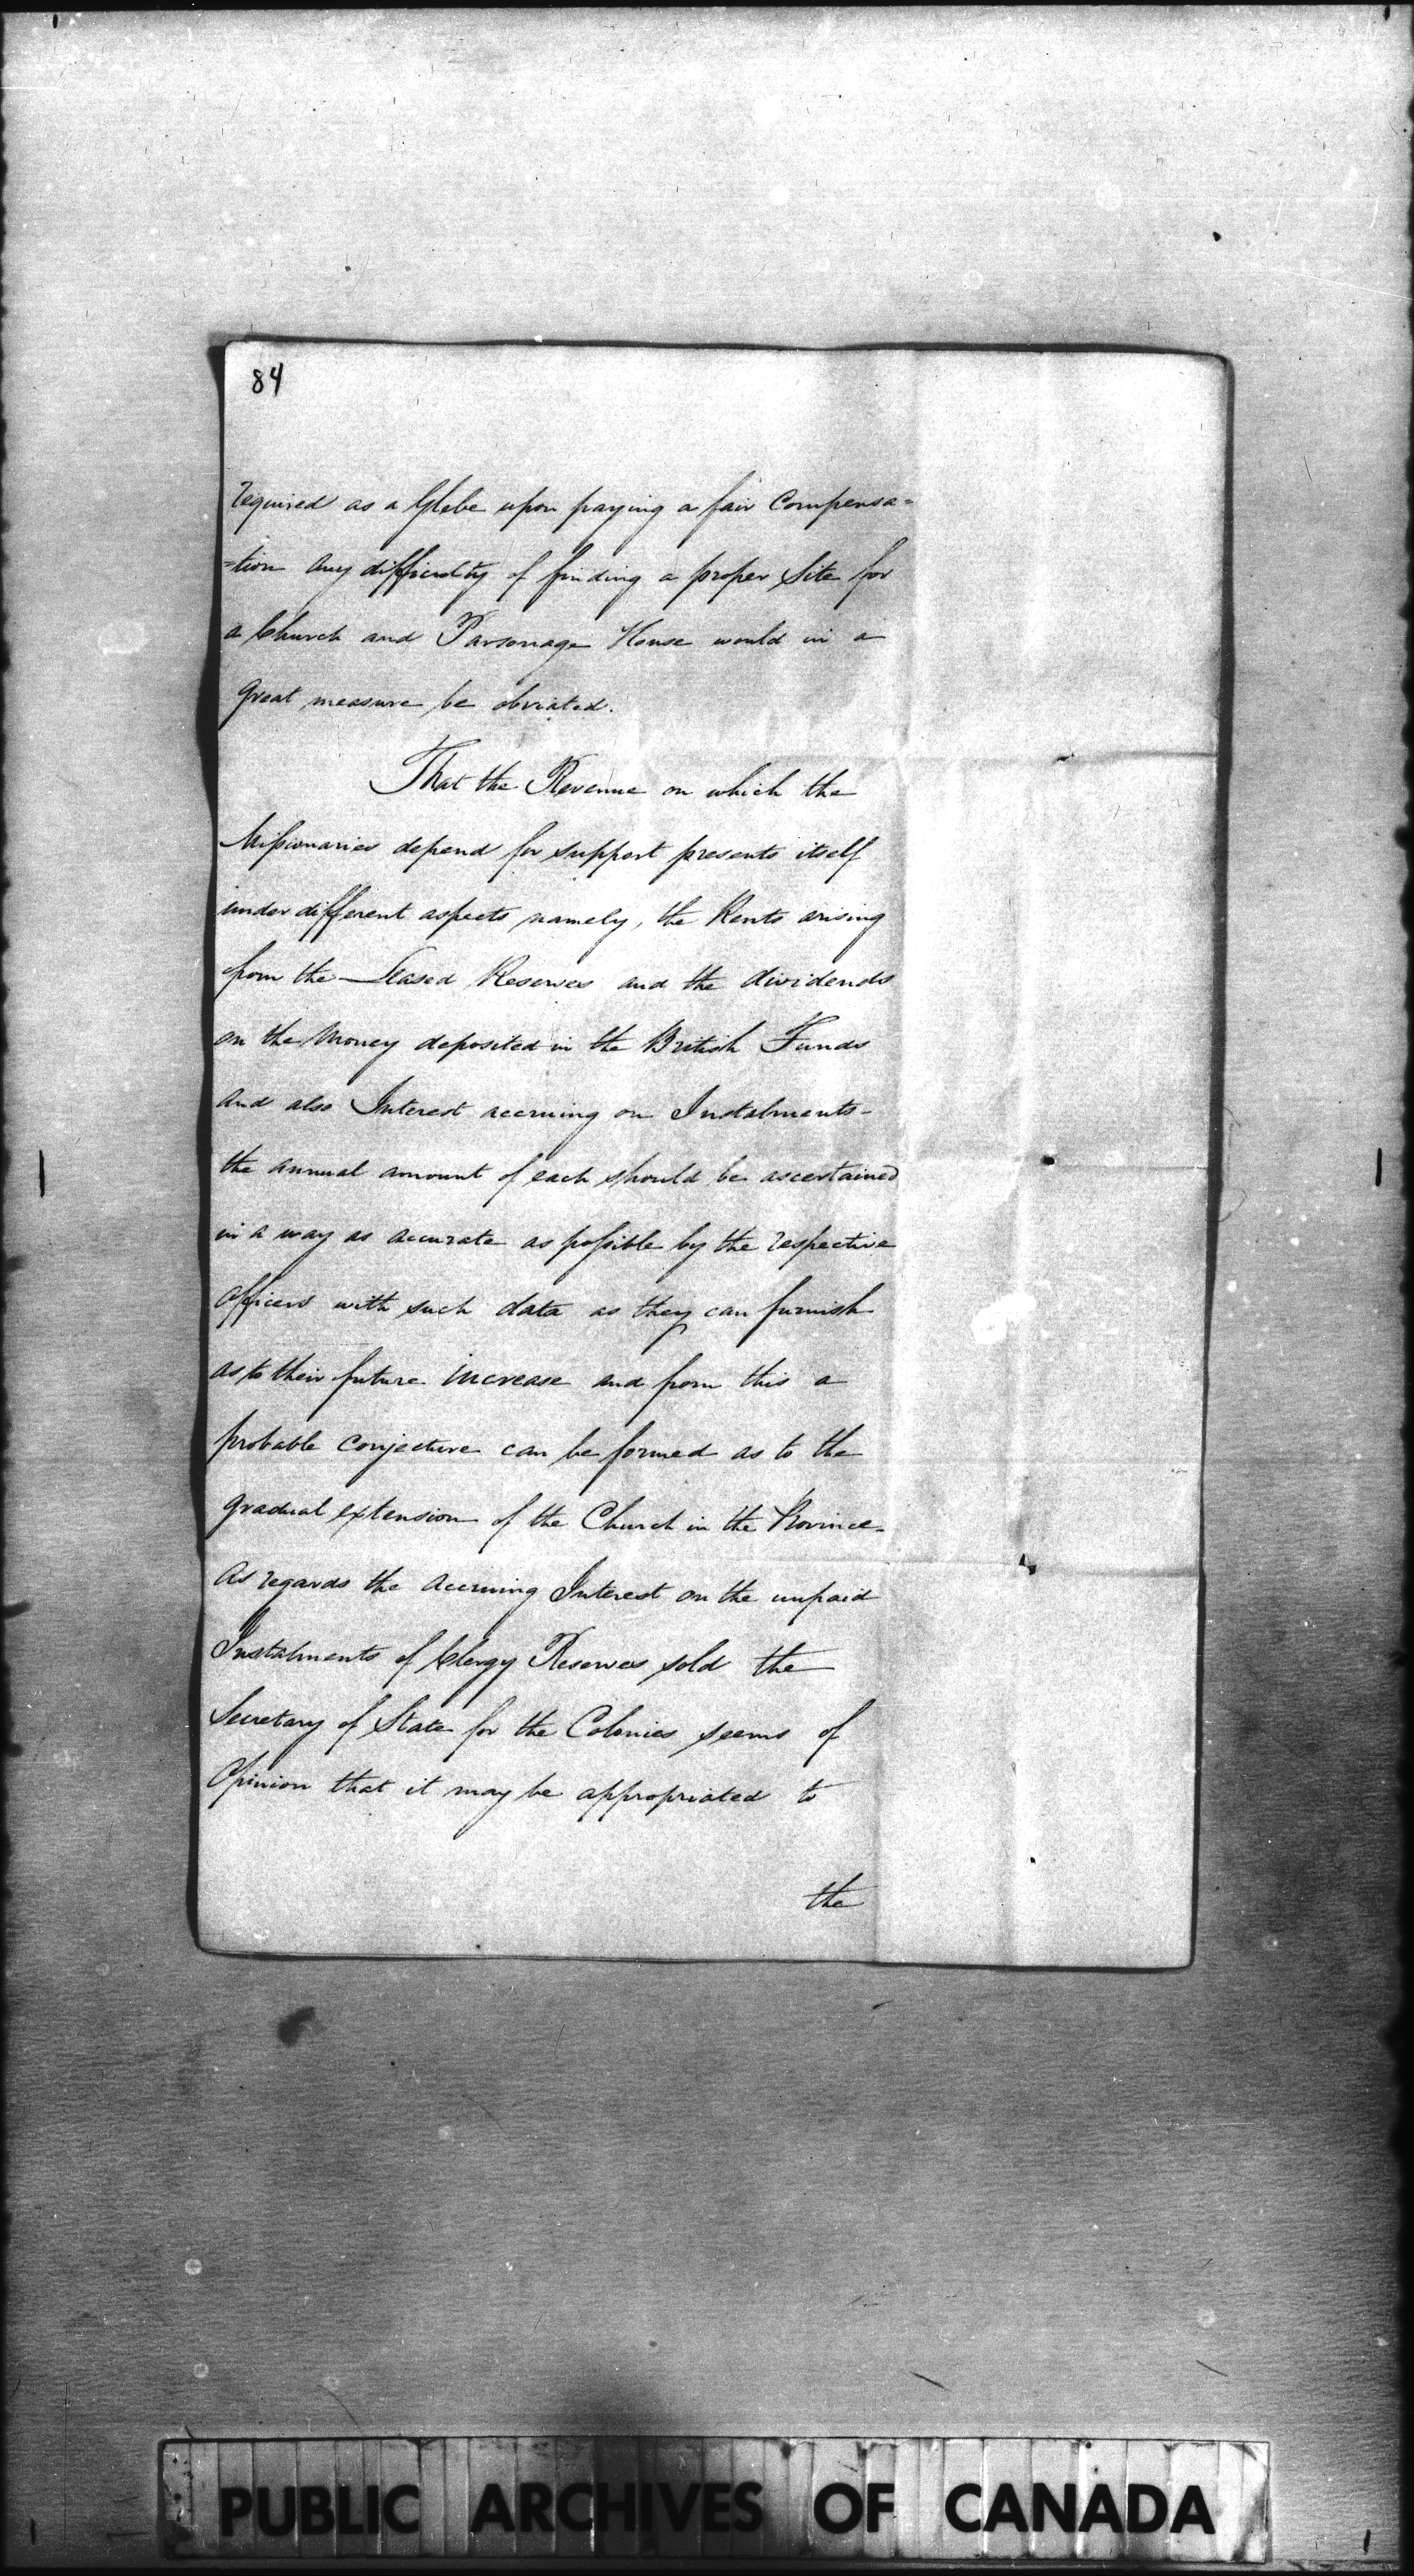 84
required as a Glebe upon paying a fair Compensa=
=tion any difficulty of finding a proper Site for
a Church and Parsonage House would in a
great measure be obviated.
That the Revenue on which the
Missionaries depend for support presents itself
under different aspects namely, the Rents arising
from the Leased Reserves and the dividends
on the Money deposited in the British Funds
and also Interest accruing on Instalments-
the annual amount of each should be ascertained
in a way as accurate as possible by the respective
officers with such data as they can furnish
as to their future increase and from this a
probable conjecture can be formed as to the
gradual extension of the Church in the Province-
As regards the accruing Interest on the unpaid
Instalments of Clergy Reserves sold the
Secretary of State for the Colonies seems of
Opinion that it may be appropriated to
the
PUBLIC ARCHIVES OF CANADA